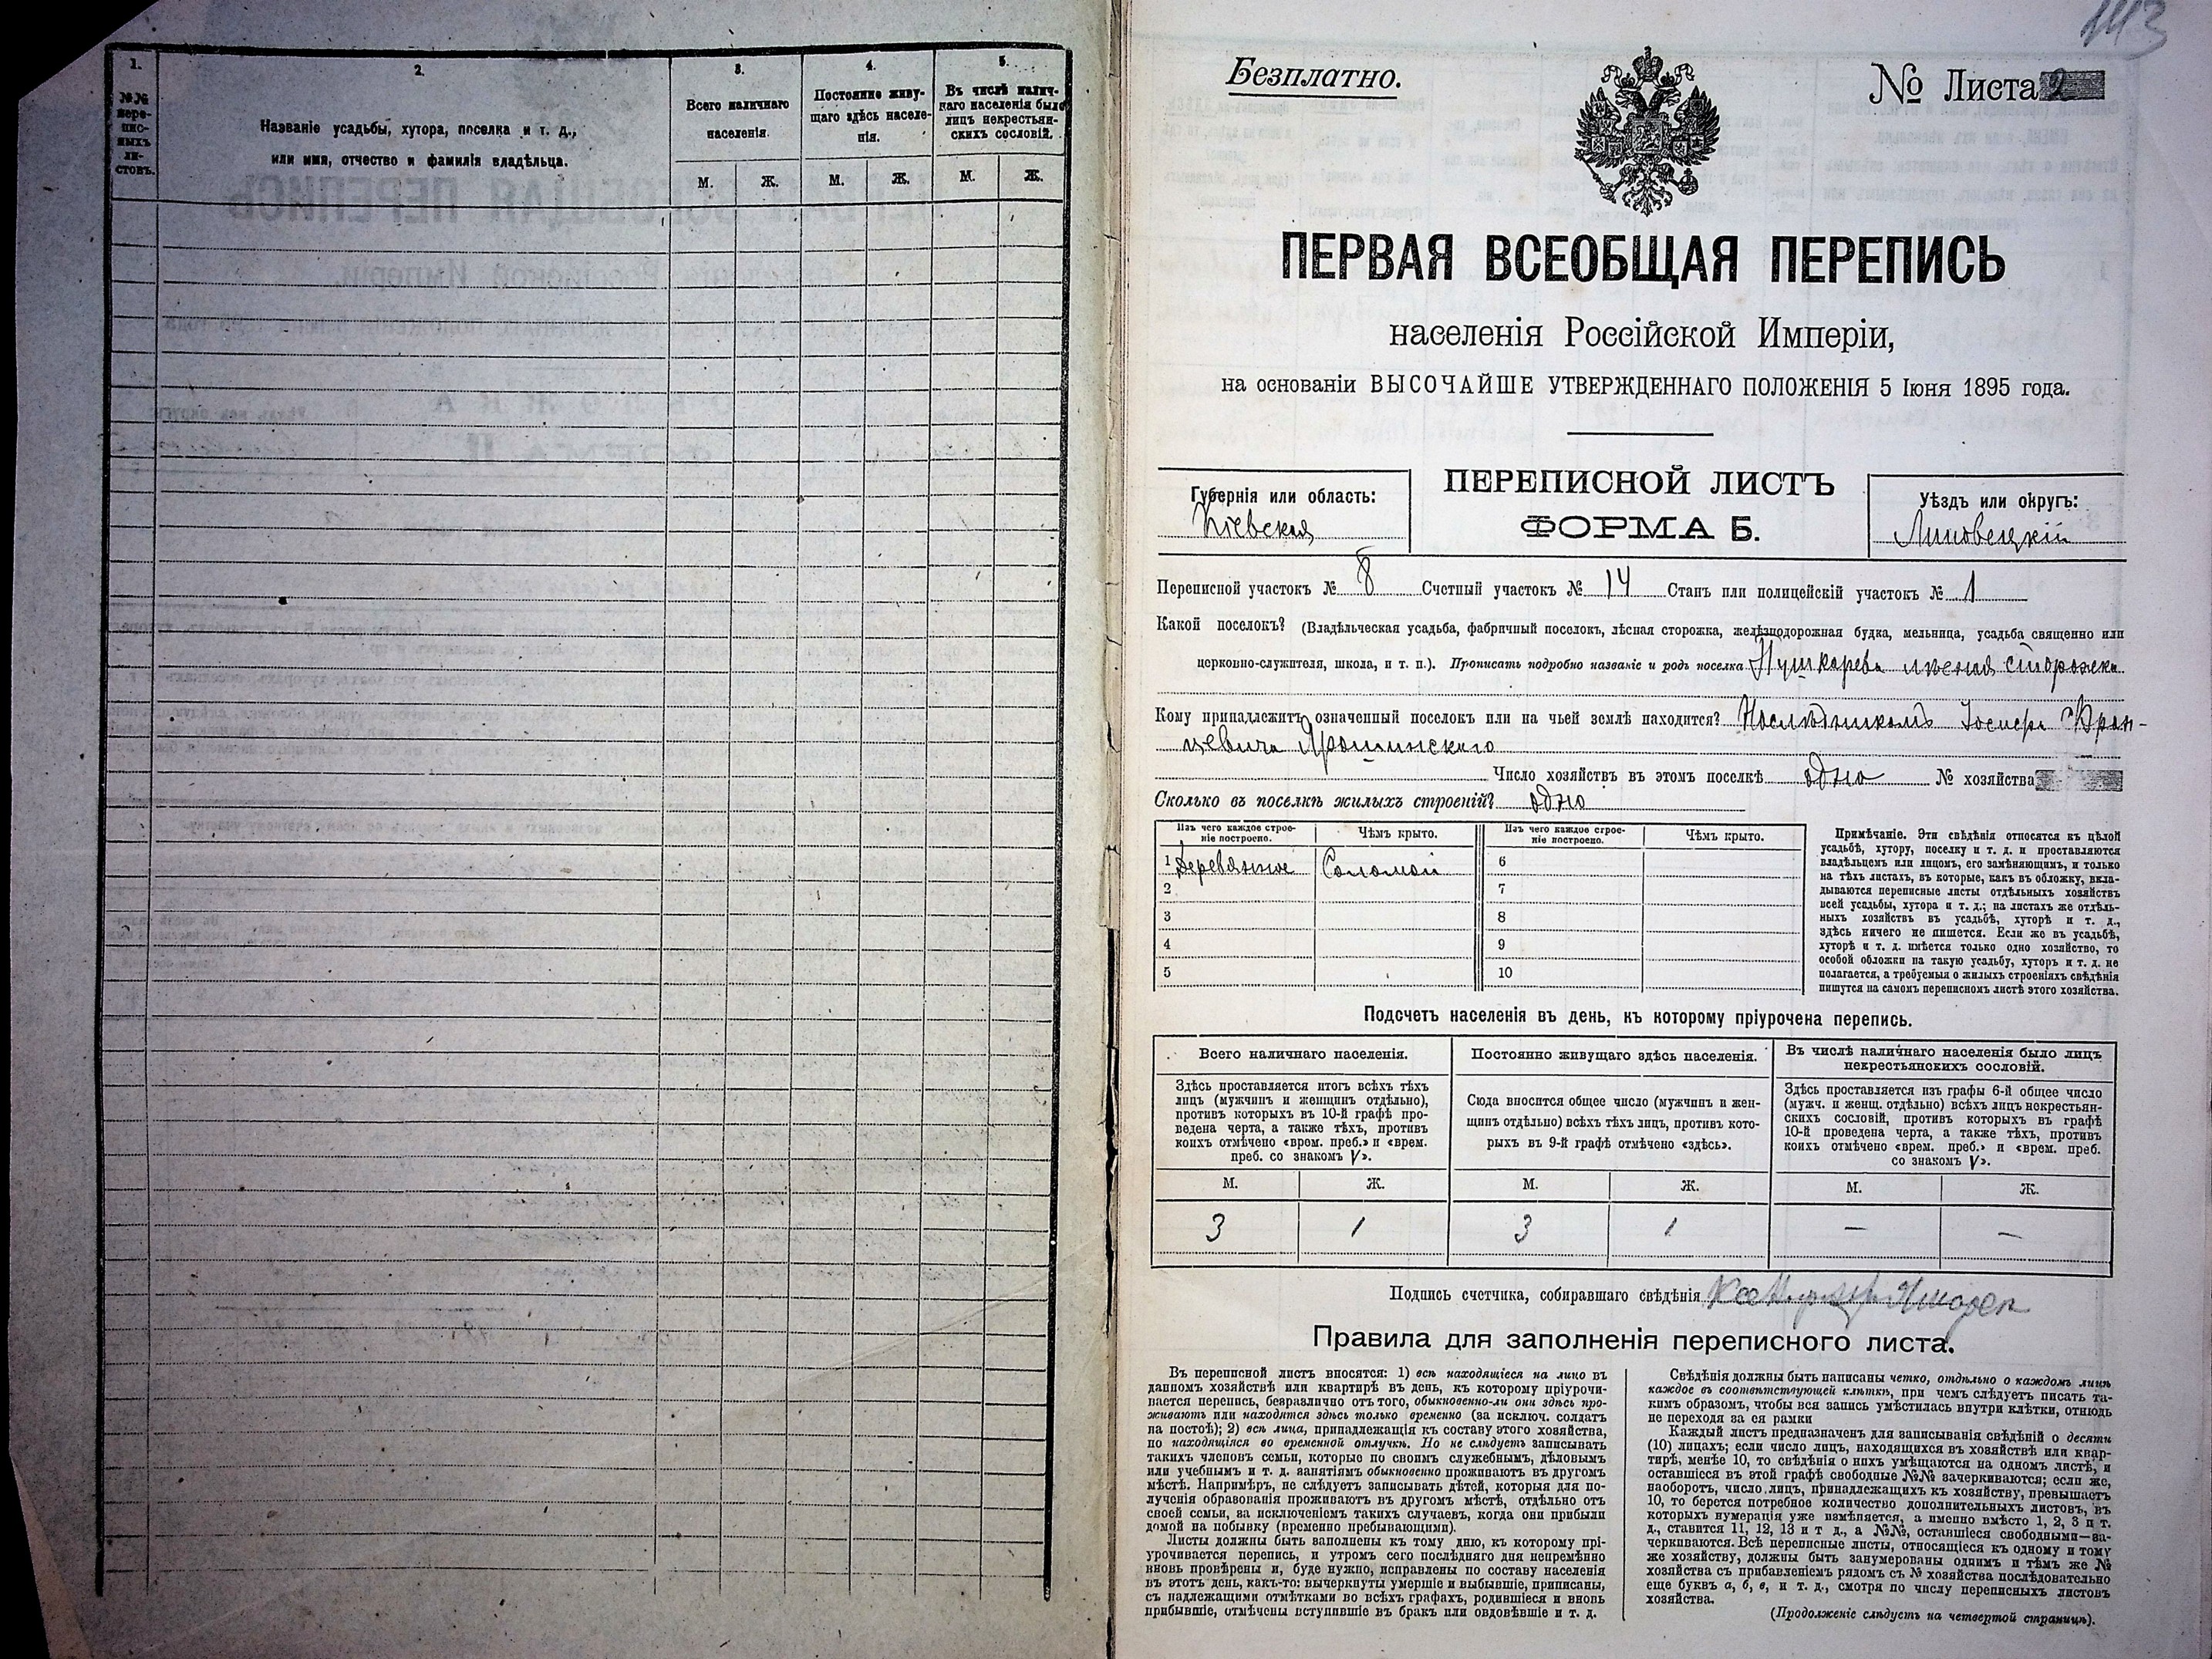 1.
№№ пере-
пис-
ныхъ
ли-
стовъ.
2.
Названіе усадьбы, хутора, поселка и т. д.,
или имя, отчество и фамилія владѣльца.
3.
Всего наличнаго
населенія.
М. Ж.
4.
Постоянно живу-
щаго здѣсь населе-
нія.
М. Ж.
5.
Въ числѣ налич-
наго населенія было
лицъ некрестьян-
скихъ сословій.
М. Ж.
143
Безплатно.
№ Листа 2
ПЕРВАЯ ВСЕОБЩАЯ ПЕРЕПИСЬ
населенія Россійской Имперіи,
на основаніи ВЫСОЧАЙШЕ УТВЕРЖДЕННАГО ПОЛОЖЕНІЯ 5 Іюня 1895 года.
Губернія или область:
Кіевская
ПЕРЕПИСНОЙ ЛИСТЪ
ФОРМА Б.
Уѣздъ или округъ:
Липовецкій
Переписной участокъ № 8 Счетный участокъ № 14 Станъ или полицейскій участокъ № 1
Какой поселокъ? (Владѣльческая усадьба, фабричный поселокъ, лѣсная сторожка, желѣзнодорожная будка, мельница, усадьба священно или
церковно-служителя, школа, и т. п.). Прописать подробно названіе и родъ поселка Пушкарева лѣсная сторожка
Кому принадлежитъ означенный поселокъ или на чьей землѣ находится? Наслѣдникамъ Іосифа Фран-
цевича Ярошинскаго
Число хозяйствъ въ этомъ поселкѣ одно № хозяйства
Сколько въ поселкѣ жилыхъ строеній? одно
Изъ чего каждое строе-
ніе построено.
Чѣмъ крыто.
Изъ чего каждое строе-
ніе построено.
Чѣмъ крыто.
1 Деревянное Соломой 6
2 7
3 8
4 9
5 10
Примѣчаніе. Эти свѣдѣнія относятся къ цѣлой
усадьбѣ, хутору, поселку и т. д. и проставляются
владѣльцемъ или лицомъ, его замѣняющимъ, и только
на тѣхъ листахъ, въ которые, какъ въ обложку, вкла-
дываются переписные листы отдѣльныхъ хозяйствъ
всей усадьбы, хутора и т. д.; на листахъ же отдѣль-
ныхъ хозяйствъ въ усадьбѣ, хуторѣ и т. д.,
здѣсь ничего не пишется. Если же въ усадьбѣ,
хуторѣ и т. д. имѣется только одно хозяйство, то
особой обложки на такую усадьбу, хуторъ и т. д. не
полагается, а требуемыя о жилыхъ строеніяхъ свѣдѣнія
пишутся на самомъ переписномъ листѣ этого хозяйства.
Подсчетъ населенія въ день, къ которому пріурочена перепись.
Всего наличнаго населенія.
Здѣсь проставляется итогъ всѣхъ тѣхъ
лицъ (мужчинъ и женщинъ отдѣльно),
противъ которыхъ въ 10-й графѣ про-
ведена черта, а также тѣхъ, противъ
коихъ отмѣчено «врем. преб.» и «врем.
преб. со знакомъ V».
М. Ж.
3 1
Постоянно живущаго здѣсь населенія.
Сюда вносится общее число (мужчинъ и жен-
щинъ отдѣльно) всѣхъ тѣхъ лицъ, противъ кото-
рыхъ въ 9-й графѣ отмѣчено «здѣсь».
М. Ж.
3 1
Въ числѣ наличнаго населенія было лицъ
некрестьянскихъ сословій.
Здѣсь проставляется изъ графы 6-й общее число
(мужч. и женщ. отдѣльно) всѣхъ лицъ некрестьян-
скихъ сословій, противъ которыхъ въ графѣ
10-й проведена черта, а также тѣхъ, противъ
коихъ отмѣчено «врем. преб.» и «врем. преб.
со знакомъ V».
М. Ж.
— —
Подпись счетчика, собиравшаго свѣдѣнія
Правила для заполненія переписного листа.
Въ переписной листъ вносятся: 1) всѣ находящіеся на лицо въ
данномъ хозяйствѣ или квартирѣ въ день, къ которому пріурочи-
вается перепись, безразлично отъ того, обыкновенно-ли они здѣсь про-
живаютъ или находятся здѣсь только временно (за исключ. солдатъ
на постоѣ); 2) всѣ лица, принадлежащія къ составу этого хозяйства,
но находящіяся во временной отлучкѣ. Но не слѣдуетъ записывать
такихъ членовъ семьи, которые по своимъ служебнымъ, дѣловымъ
или учебнымъ и т. д. занятіямъ обыкновенно проживаютъ въ другомъ
мѣстѣ. Напримѣръ, не слѣдуетъ записывать дѣтей, которыя для по-
лученія образованія проживаютъ въ другомъ мѣстѣ, отдѣльно отъ
своей семьи, за исключеніемъ такихъ случаевъ, когда они прибыли
домой на побывку (временно пребывающими).
Листы должны быть заполнены къ тому дню, къ которому прі-
урочивается перепись, и утромъ сего послѣдняго дня непремѣнно
вновь провѣрены и, буде нужно, исправлены по составу населенія
въ этотъ день, какъ-то: вычеркнуты умершіе и выбывшіе, приписаны,
съ надлежащими отмѣтками во всѣхъ графахъ, родившіеся и вновь
прибывшіе, отмѣчены вступившіе въ бракъ или овдовѣвшіе и т. д.
Свѣдѣнія должны быть написаны четко, отдѣльно о каждомъ лицѣ
каждое въ соотвѣтствующей клѣткѣ, при чемъ слѣдуетъ писать та-
кимъ образомъ, чтобы вся запись умѣстилась внутри клѣтки, отнюдь
не переходя за ея рамки
Каждый листъ предназначенъ для записыванія свѣдѣній о десяти
(10) лицахъ; если число лицъ, находящихся въ хозяйствѣ или квар-
тирѣ, менѣе 10, то свѣдѣнія о нихъ умѣщаются на одномъ листѣ, и
оставшіеся въ этой графѣ свободные №№ зачеркиваются; если же,
наоборотъ, число лицъ, принадлежащихъ къ хозяйству, превышаетъ
10, то берется потребное количество дополнительныхъ листовъ, въ
которыхъ нумерація уже измѣняется, а именно вмѣсто 1, 2, 3 и т.
д., ставится 11, 12, 13 и т д., а №№, оставшіеся свободными—за-
черкиваются. Всѣ переписные листы, относящіеся къ одному и тому
же хозяйству, должны быть занумерованы однимъ и тѣмъ же №
хозяйства съ прибавленіемъ рядомъ съ № хозяйства послѣдовательно
еще буквъ а, б, в, и т. д., смотря по числу переписныхъ листовъ
хозяйства.
(Продолженіе слѣдуетъ на четвертой страницѣ).